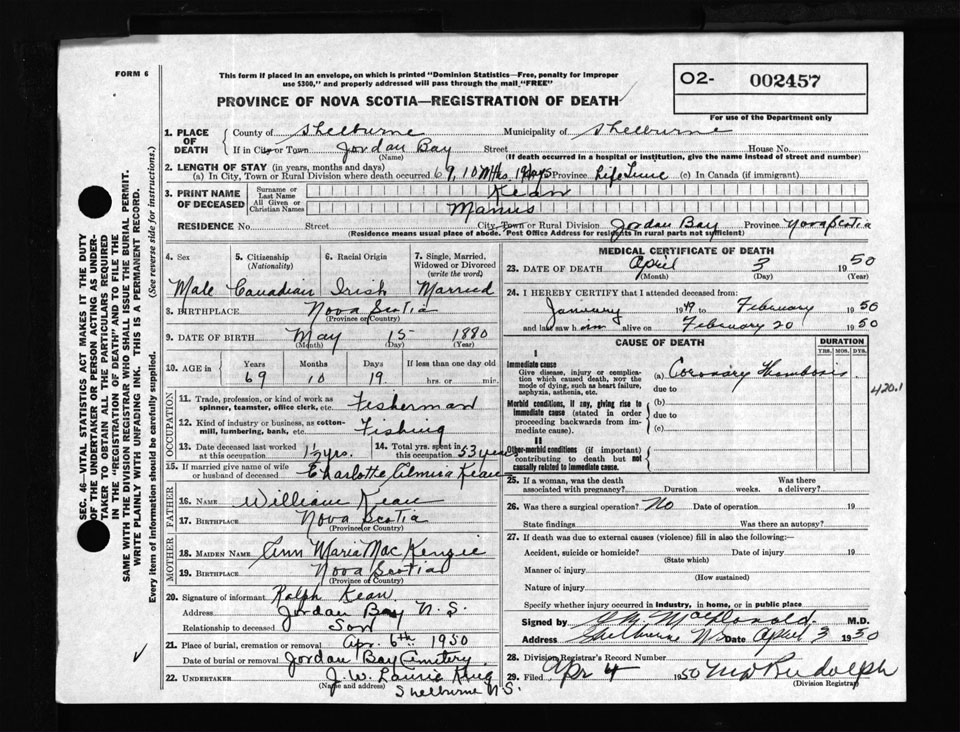 FORM 6
This form if placed in an envelope, on which is printed "Dominion Statistics—Free, penalty for improper
use $300," and properly addressed will pass through the mail "FREE"
O2- 002457
For use of the Department only
PROVINCE OF NOVA SCOTIA—REGISTRATION OF DEATH
SEC. 46—VITAL STATISTICS ACT MAKES IT THE DUTY
OF THE UNDERTAKER OR PERSON ACTING AS UNDER-
TAKER TO OBTAIN ALL THE PARTICULARS REQUIRED
IN THE "REGISTRATION OF DEATH" AND FILE THE
SAME WITH THE DIVISION REGISTRAR WHO SHALL ISSUE THE BURIAL PERMIT.
WRITE PLAINLY WITH UNFADING INK. THIS IS A PERMANENT RECORD.
Every item of information should be carefully supplied. (See reverse side for instructions.)
1. PLACE OF DEATH County of Shelburne Municipality of Shelburne
If in City or Town Jordan Bay Street House No.
(Name) (If death occurred in a hospital or institution, give the name instead of street and number)
2. LENGTH OF STAY (in years, months and days)
(a) In City, Town or Rural Division where death occurred 69, 10 Mths, 19 dys Province Life Time (c) In Canada (if immigrant)
3. PRINT NAME OF DECEASED Surname or Last Name Kean
All Given or Christian Names Manus
RESIDENCE No. Street City, Town or Rural Division Jordan Bay Province Nova Scotia
(Residence means usual place of abode. Post Office Address for residents in rural parts not sufficient)
4. Sex 5. Citizenship (Nationality) 6. Racial Origin 7. Single, Married, Widowed or Divorced (write the word)
Male Canadian Irish Married
8. BIRTHPLACE Nova Scotia
(Province or Country)
9. DATE OF BIRTH May 15 1880
(Month) (Day) (Year)
10. AGE in Years Months Days If less than one day old
69 10 19 hrs. or min.
OCCUPATION
11. Trade, profession, or kind of work as spinner, teamster, office clerk, etc. Fisherman
12. Kind of industry or business, as cotton-mill, lumbering, bank, etc. Fishing
13. Date deceased last worked at this occupation 1½ yrs. 14. Total yrs. spent in this occupation 53 years
15. If married give name of wife or husband of deceased Charlotte Almira Kean
FATHER
16. NAME William Kean
17. BIRTHPLACE Nova Scotia
(Province or Country)
MOTHER
18. MAIDEN NAME Ann Maria MacKenzie
19. BIRTHPLACE Nova Scotia
(Province or Country)
20. Signature of informant Ralph Kean
Address Jordan Bay N.S.
Relationship to deceased Son
21. Place of burial, cremation or removal Apr. 6th 1950
Date of burial or removal Jordan Bay Cemetery
22. UNDERTAKER J. W. Laurie King
(Name and address) Shelburne N.S.
MEDICAL CERTIFICATE OF DEATH
23. DATE OF DEATH April 3 1950
(Month) (Day) (Year)
24. I HEREBY CERTIFY that I attended deceased from:
January 1949 to February 1950
and last saw him alive on February 20 1950
CAUSE OF DEATH DURATION
YRS. MOS. DYS.
I
Immediate cause
Give disease, injury or complica-
tion which caused death, not the
mode of dying, such as heart failure,
asphyxia, asthenia, etc.
(a) Coronary Thombosis.
due to
420.1
Morbid conditions, if any, giving rise to
immediate cause (stated in order
proceeding backwards from im-
mediate cause).
(b)
due to
(c)
II
Other morbid conditions (if important)
contributing to death but not
causally related to immediate cause.
25. If a woman, was the death
associated with pregnancy? Duration weeks. Was there
a delivery?
26. Was there a surgical operation? No Date of operation 19
State findings Was there an autopsy?
27. If death was due to external causes (violence) fill in also the following:—
Accident, suicide or homicide? Date of injury 19
(State which)
Manner of injury
(How sustained)
Nature of injury
Specify whether injury occurred in industry, in home, or in public place
Signed by MacDonald M.D.
Address Shelburne N.S. Date April 3 1950
28. Division Registrar's Record Number
29. Filed Apr 4 1950 Rudolph
(Division Registrar)